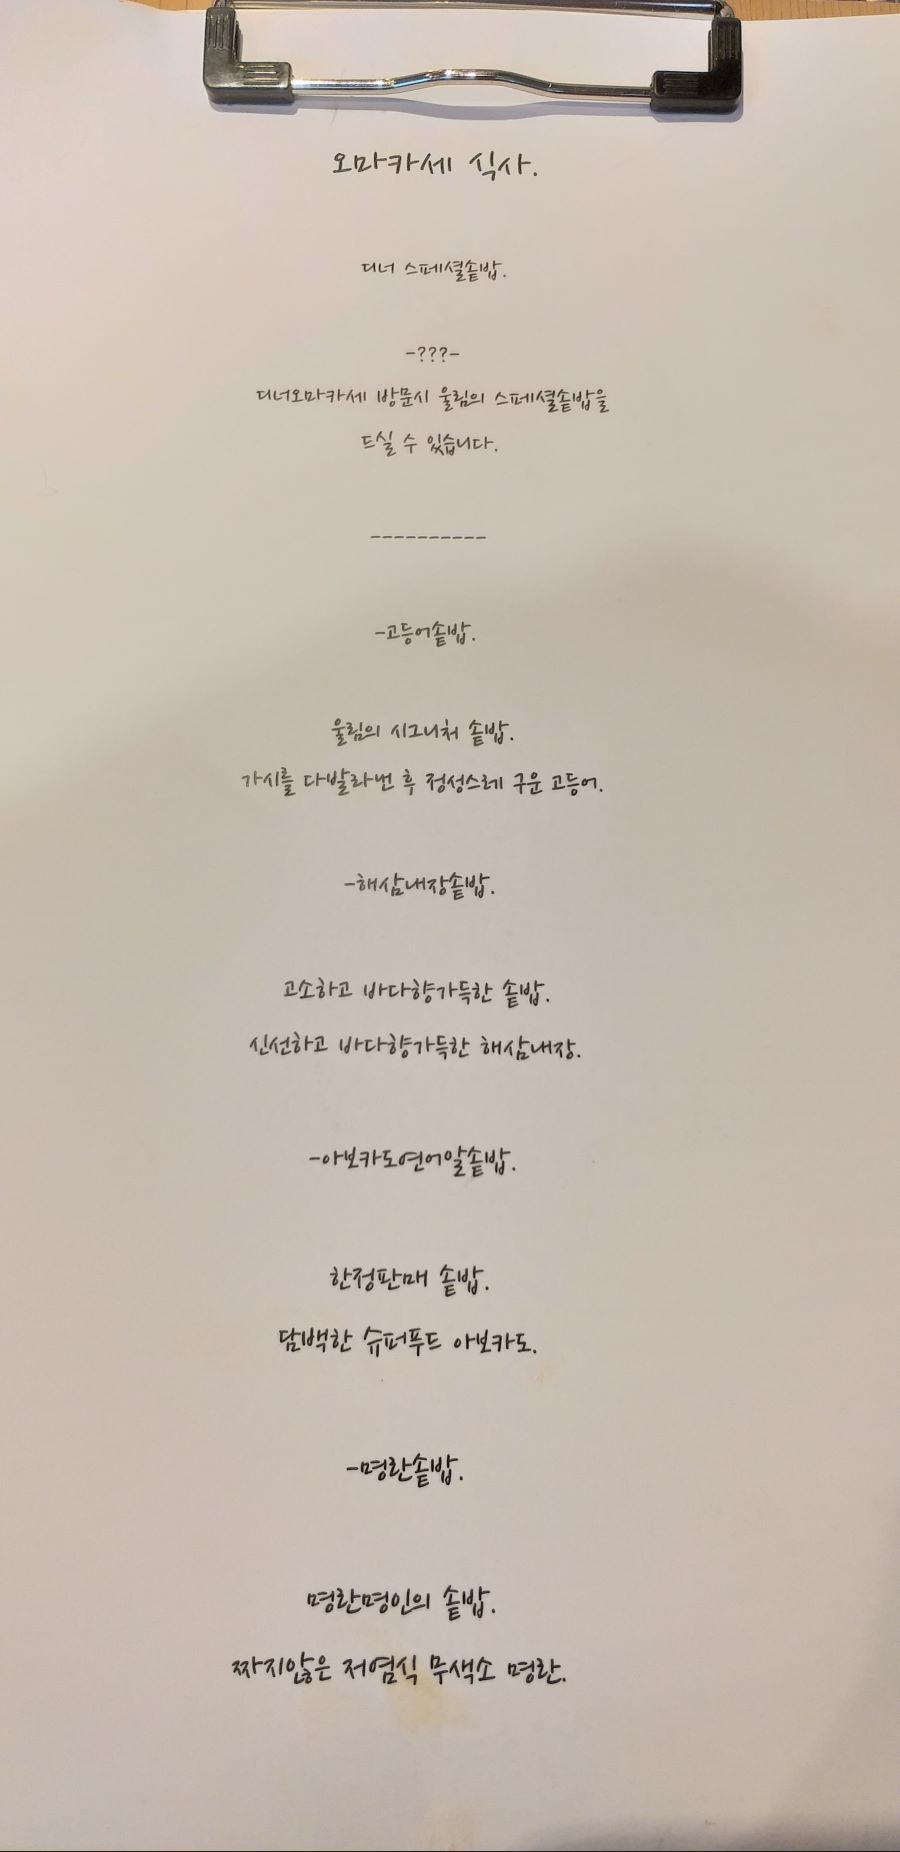 오마카세 식사.
디너 스페셜솥밥.
-???-
디너오마카세 방문시 울림의 스페셜솥밥을
드실 수 있습니다.
----------
-고등어솥밥.
울림의 시그니처 솥밥.
가시를 다발라낸 후 정성스레 구운 고등어.
-해삼내장솥밥.
고소하고 바다향가득한 솥밥.
신선하고 바다향가득한 해삼내장.
-아보카도연어알솥밥.
한정판매 솥밥.
담백한 슈퍼푸드 아보카도.
-명란솥밥.
명란명인의 솥밥.
짜지않은 저염식 무색소 명란.